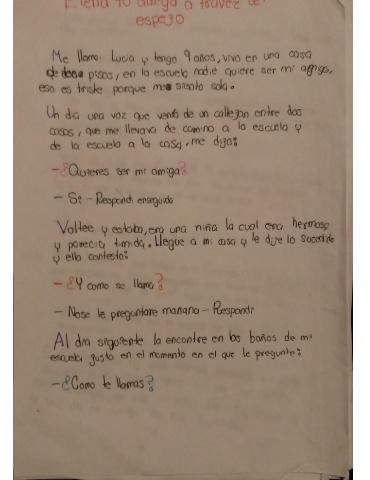 Elena tu amiga a travez del
espejo
Me llamo Lucia y tengo 9 años, vivo en una casa
de dos pisos, en la escuela nadie quiere ser mi amigo,
eso es triste porque me siento sola.
Un dia una voz que venia de un callejon entre dos
casas, que me llevava de camino a la escuela y
de la escuela a la casa, me dijo:
-¿Quieres ser mi amiga?
- Si - Respondi enseguida
Voltee y estaba, era una niña la cual era hermosa
y parecia timida. Llegue a mi casa y le dije lo sucedido
y ella contesto:
-¿Y como se llama?
- Nose le preguntare mañana - Respondi
Al dia siguiente la encontre en los baños de mi
escuela justo en el momento en el que le pregunte:
-¿Como te llamas?